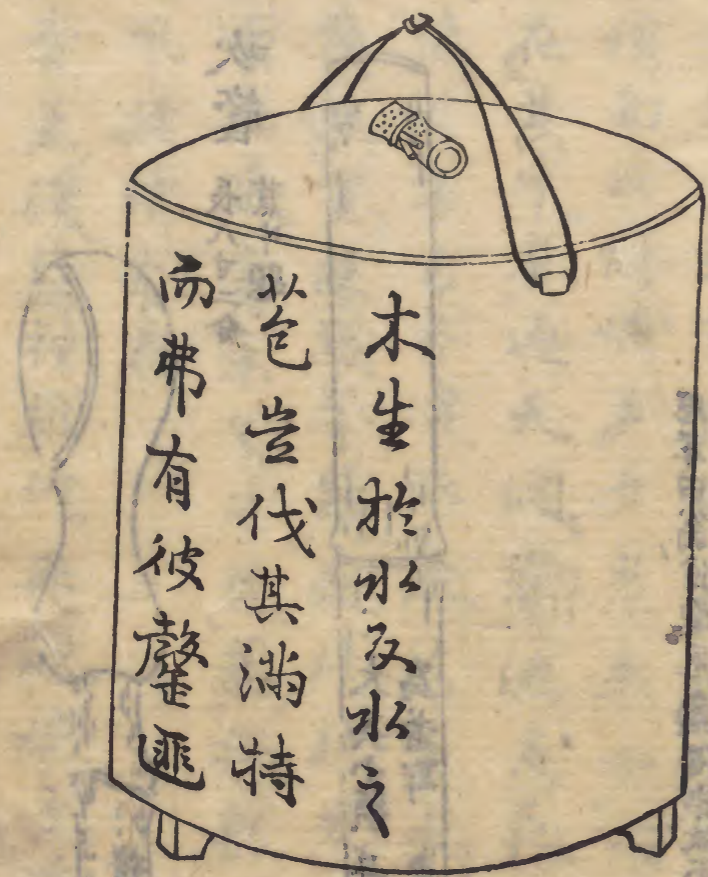 木生扵水反水之
苞豈伐其滿特
而弗有彼罄匪